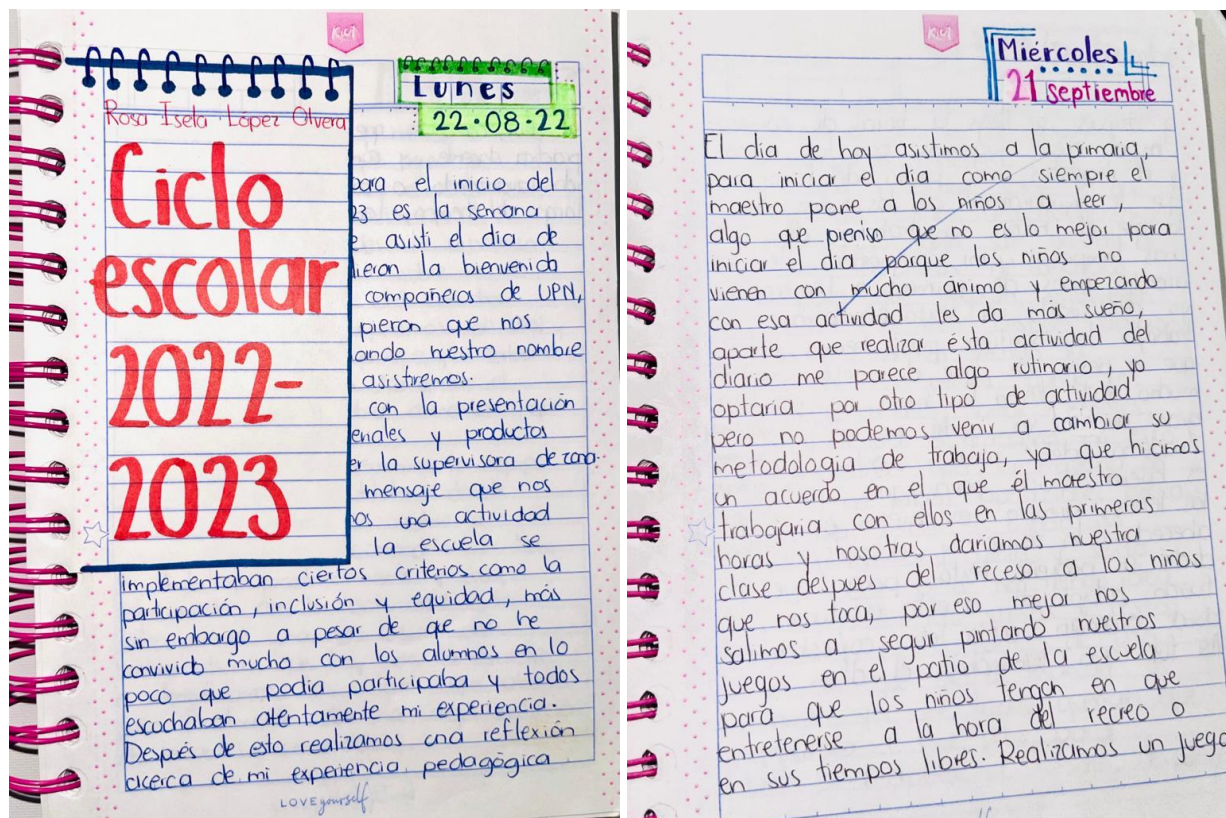 KIUT
Rosa Isela López Olvera
Ciclo
escolar
2022-
2023
Lunes
22·08·22
para el inicio del
23 es la semana
e asisti el dia de
dieron la bienvenida
compañeros de UPN,
pieron que nos
ando nuestro nombre
asistiremos.
con la presentación
eriales y productos
er la supervisora de zona.
mensaje que nos
mos una actividad
la escuela se
implementaban ciertos criterios como la
participación, inclusión y equidad, más
sin embargo a pesar de que no he
convivido mucho con los alumnos en lo
poco que podia participaba y todos
escuchaban atentamente mi experiencia.
Después de esto realizamos una reflexión
acerca de mi experiencia pedagógica
LOVE yourself
KIUT
Miércoles
21 septiembre
El dia de hoy asistimos a la primaria,
para iniciar el dia como siempre el
maestro pone a los niños a leer,
algo que pienso que no es lo mejor para
iniciar el dia porque los niños no
vienen con mucho ánimo y empezando
con esa actividad les da más sueño,
aparte que realizar ésta actividad del
diario me parece algo rutinario, yo
optaria por otro tipo de actividad
pero no podemos venir a cambiar su
metodologia de trabajo, ya que hicimos
un acuerdo en el que él maestro
trabajaria con ellos en las primeras
horas y nosotras dariamos nuestra
clase despues del receso a los niños
que nos toca, por eso mejor nos
salimos a seguir pintando nuestros
juegos en el patio de la escuela
para que los niños tengan en que
entretenerse a la hora del recreo o
en sus tiempos libres. Realizamos un juego